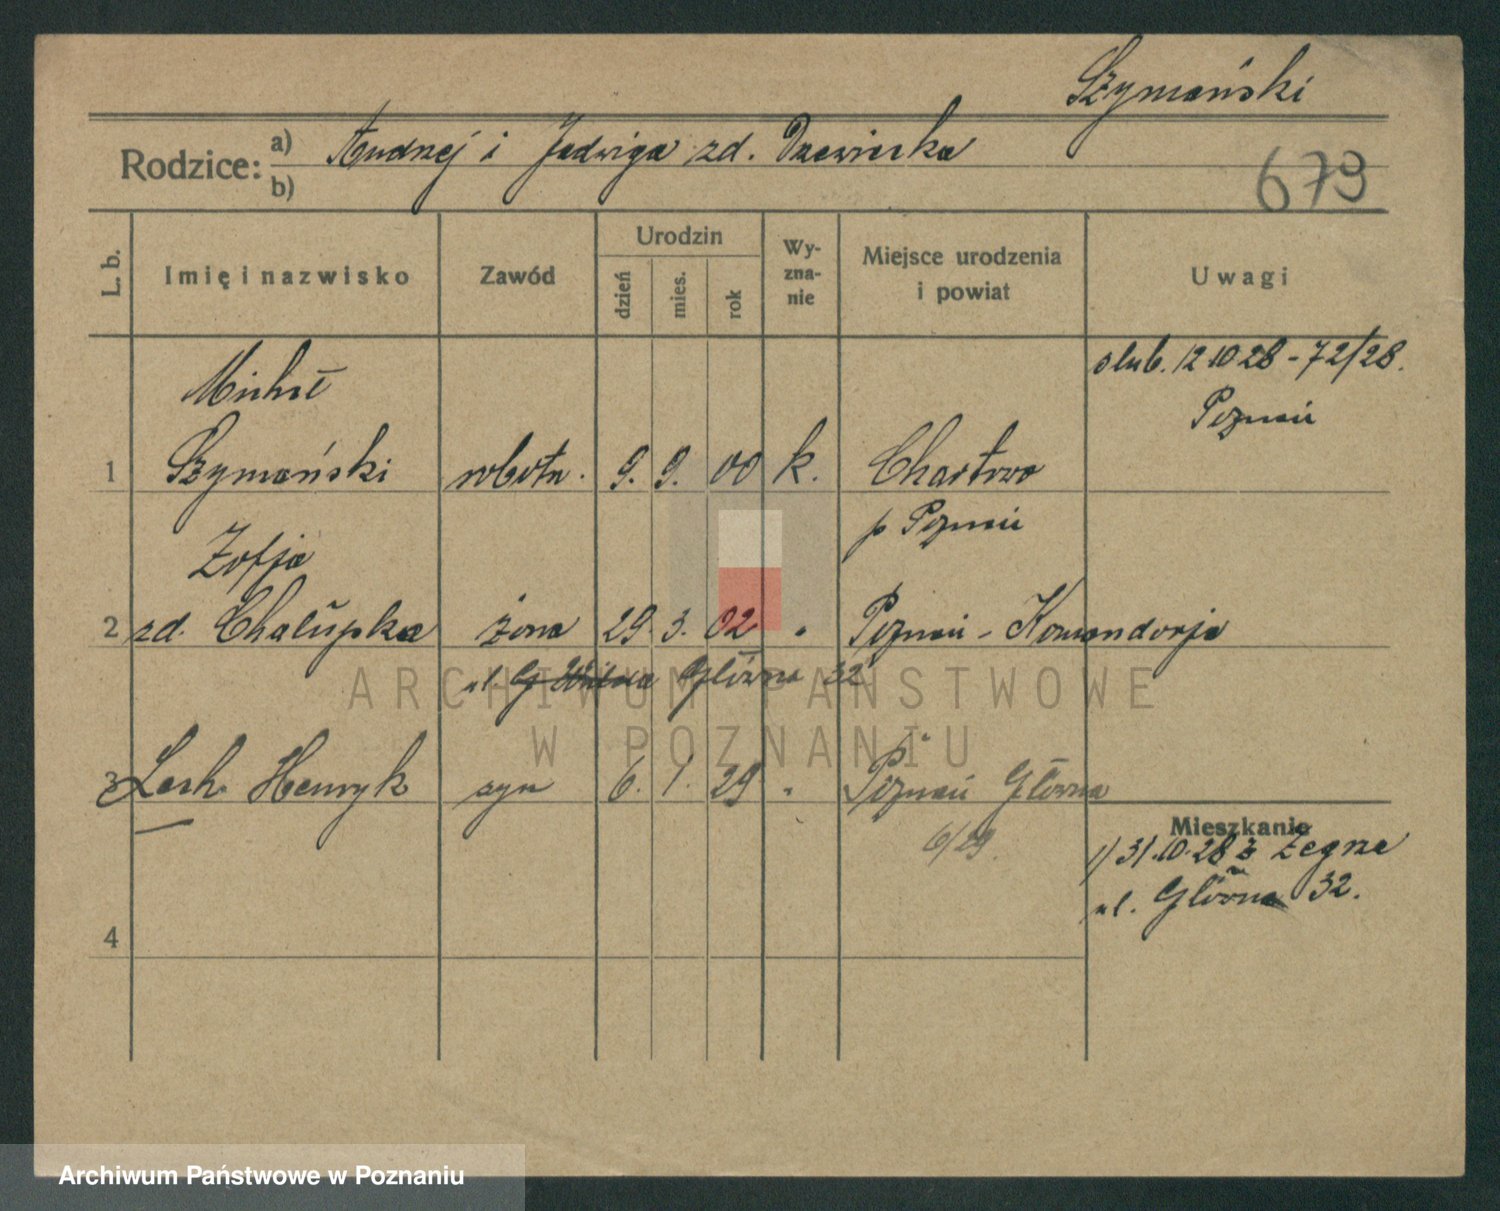 Szymański
Rodzice: a) Andrzej i Jadwiga zd. Drzewiecka
b)
679
L. b.
Imię i nazwisko
Zawód
Urodzin
dzień
mies.
rok
Wy-
zna-
nie
Miejsce urodzenia
i powiat
Uwagi
ślub. 12 10 28 - 72/28.
Poznań
Michał
1 Szymański robotn. 9. 9. 00 k. Chartowo
p Poznań
Zofja
2 zd. Chałupka żona 29. 3. 02 " Poznań - Komandorja
ul. Główna 32
3 Lech Henryk syn 6. 1. 29 " Poznań Główna
6/29.
Mieszkanie
1) 31.10.28 z Żegrza
ul. Główna 32.
4
ARCHIWUM PAŃSTWOWE
W POZNANIU
Archiwum Państwowe w Poznaniu